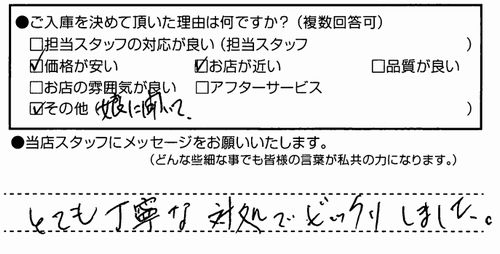 ●ご入庫を決めて頂いた理由は何ですか？（複数回答可）
□担当スタッフの対応が良い（担当スタッフ　　　　　　　）
☑価格が安い　☑お店が近い　□品質が良い
□お店の雰囲気が良い　□アフターサービス
☑その他　娘に聞いて、　　　　　　　）
●当店スタッフにメッセージをお願いいたします。
（どんな些細な事でも皆様の言葉が私共の力になります。）
とても丁寧な対処でビックリしました。